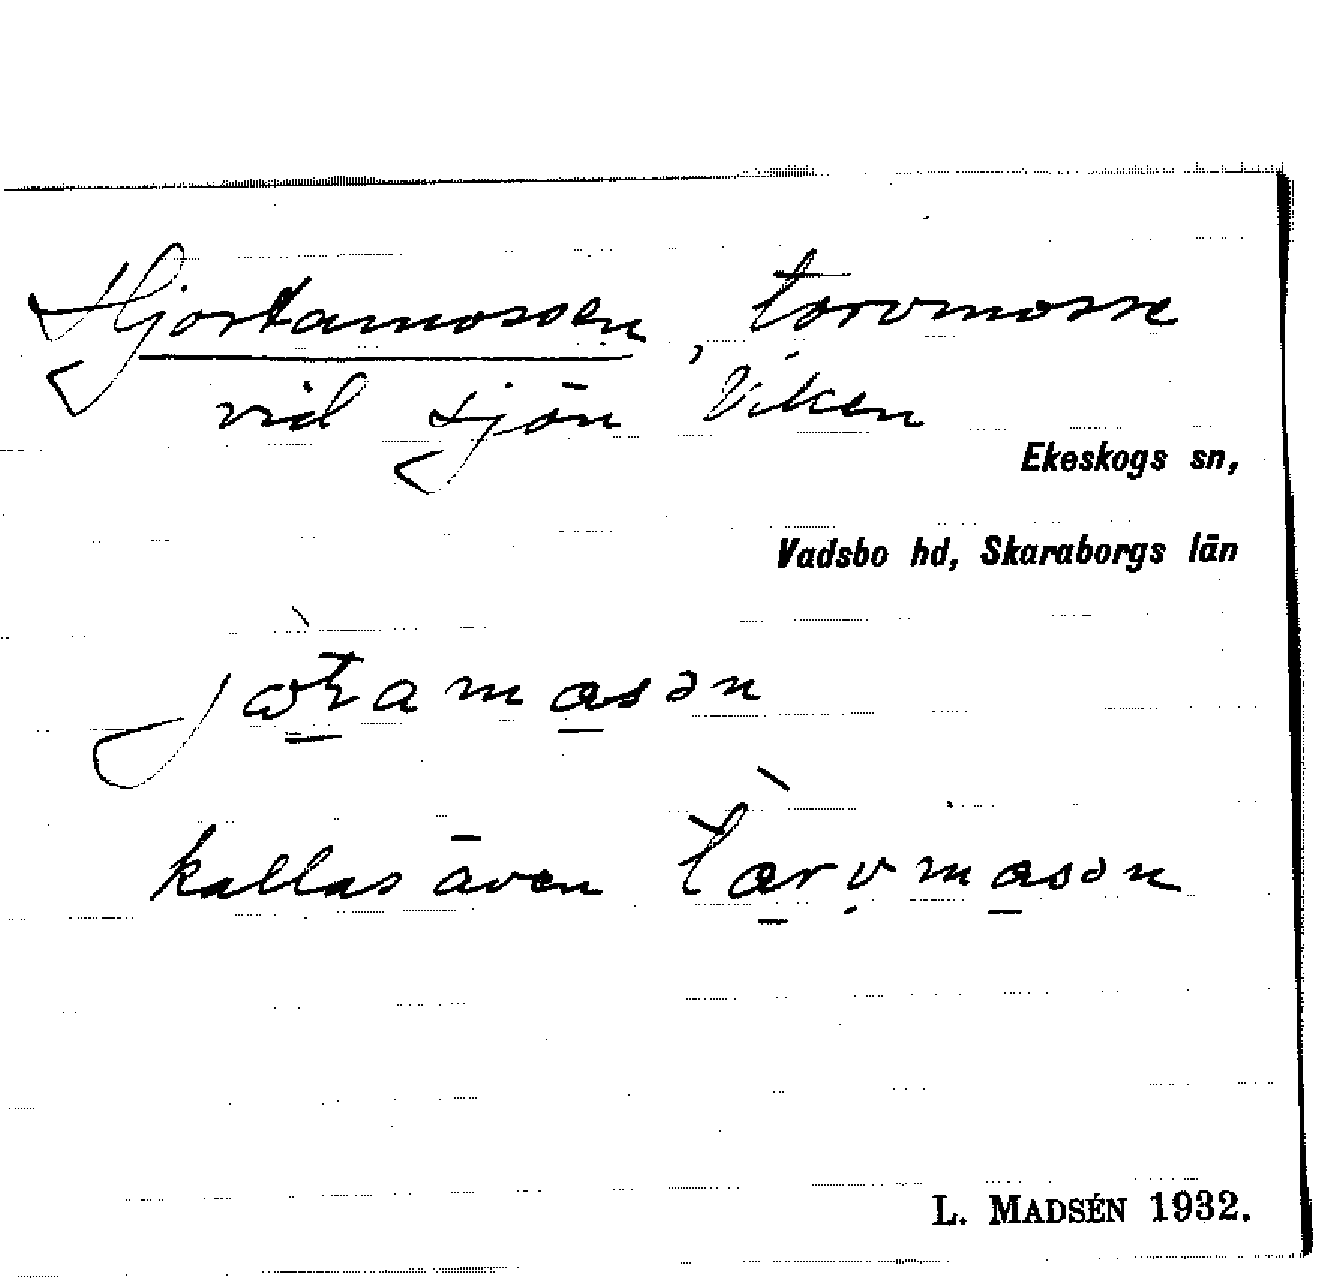 Hjortamossen, torvmosse
vid sjön Viken
Ekeskogs sn,
Vadsbo hd, Skaraborgs län
kallas även
L. MADSÉN 1932.